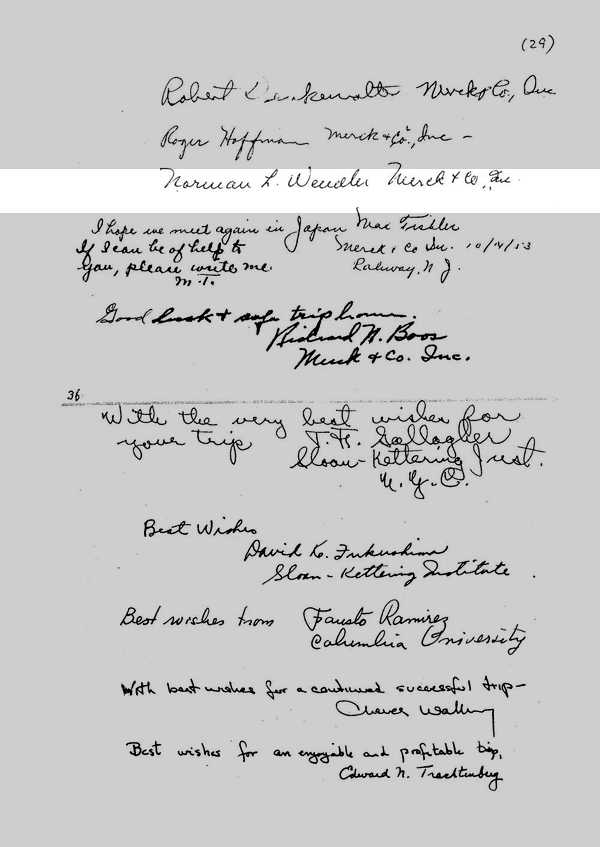 (29)
Robert Denkewalter Merck & Co., Inc
Roger Hoffman Merck & Co., Inc -
Norman L. Wendler Merck & Co., Inc.
I hope we meet again in Japan Max Tishler
If I can be of help to Merck & Co Inc. 10/14/53
you, please write me Rahway, N J.
M.T.
Good luck & safe trip home.
Richard H. Boos
Merck & Co. Inc.
36
With the very best wishes for
your trip T.F. Gallagher
Sloan-Kettering Inst.
N.Y.C.
Best Wishes
David K. Fukushima
Sloan-Kettering Institute.
Best wishes from Fausto Ramirez
Columbia University
With best wishes for a continued successful trip-
Cheves Walling
Best wishes for an enjoyable and profitable trip,
Edward N. Trachtenberg